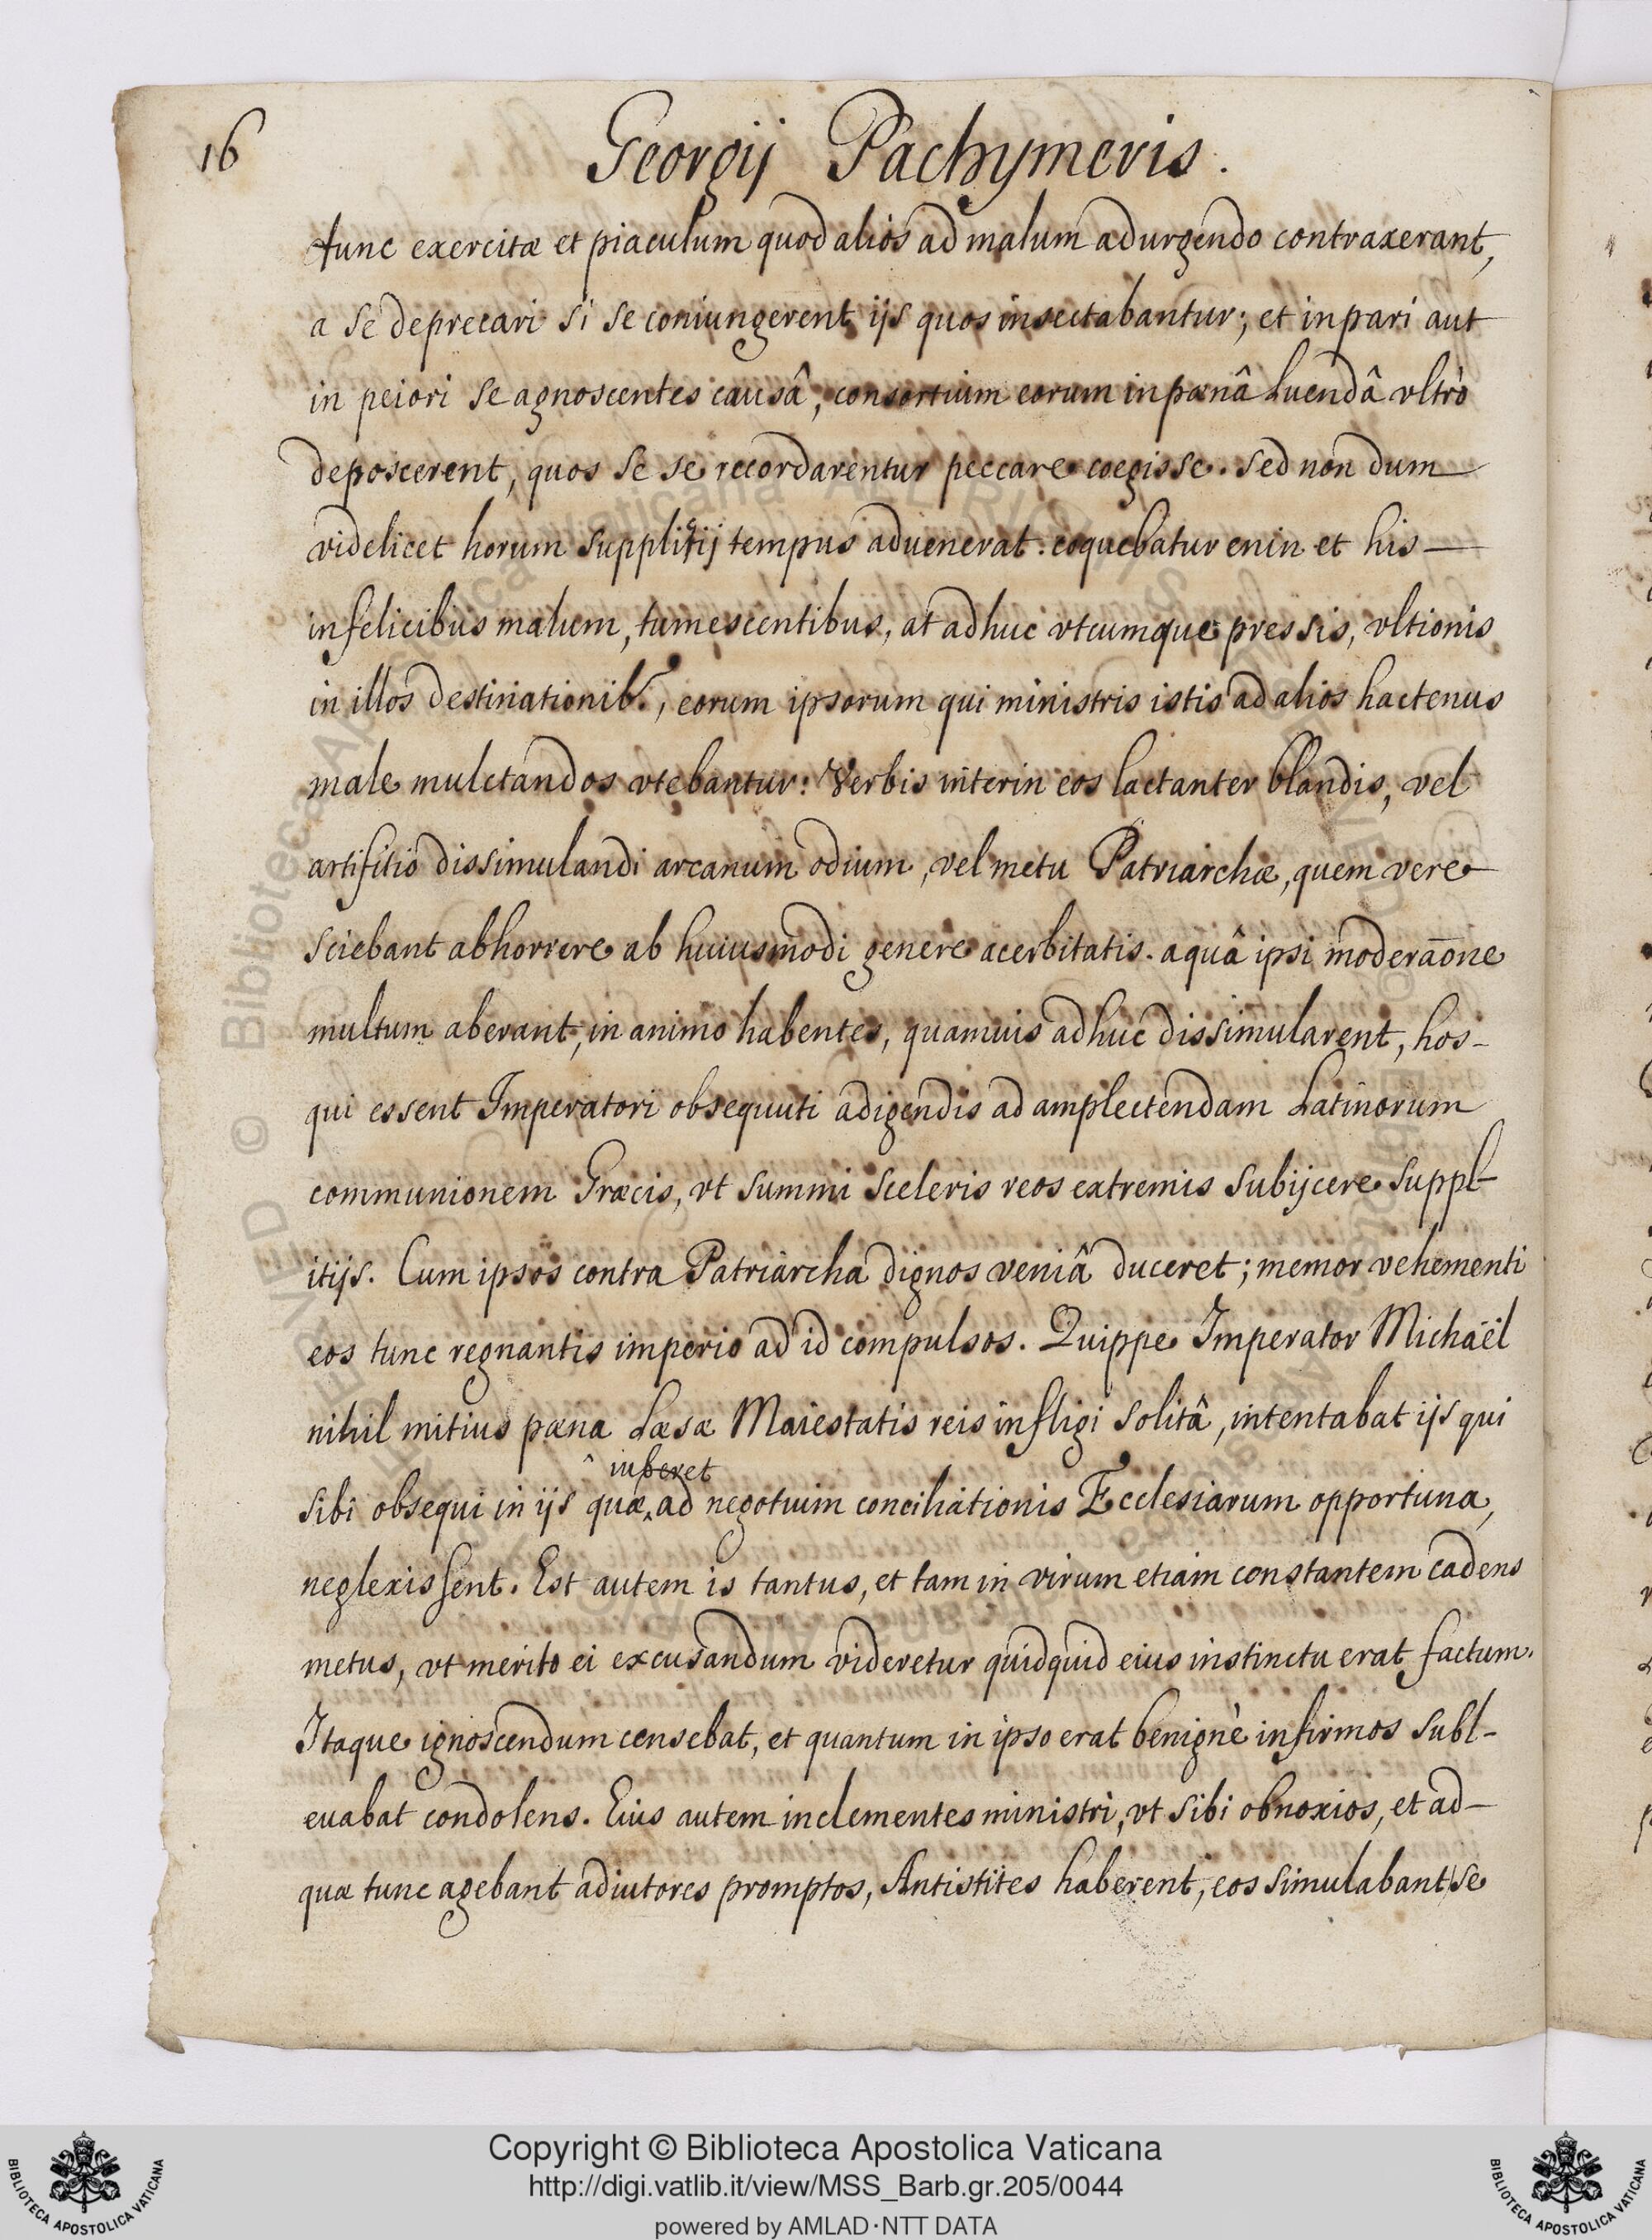 16
Georgij Pachymeris.
tunc exercitæ et piaculum quod alios ad malum adurgendo contraxerant,
a se deprecari si se coniungerent ijs quos insectabantur; et in pari aut
in peiori se agnoscentes causâ, consortium eorum in pœnâ Luendâ vltrò
deposcerent, quos se se recordarentur peccare coegisse. Sed non dum
videlicet horum supplicij tempus aduenerat. coquebatur enin et his
infelicibus malum, tumescentibus, at adhuc vtcumque pressis, vltionis
in illos destinationib., eorum ipsorum qui ministris istis ad alios hactenus
male mulctandos vtebantur: Verbis interin eos lactanter blandis, vel
artifitio dissimulandi arcanum odium, vel metu Patriarchæ, quem vere
sciebant abhorrere ab huiusmodi genere acerbitatis. a quâ ipsi moderaōne
multum aberant, in animo habentes, quamuis adhuc dissimularent, hos-
qui essent Imperatori obsequuti adigendis ad amplectendam Latinorum
communionem Græcis, vt summi sceleris reos extremis subijcere suppl-
itijs. Cum ipsos contra Patriarcha dignos veniâ duceret; memor vehementi
eos tunc regnantis imperio ad id compulsos. Quippe Imperator Michaël
nihil mitius pœna Læsæ Maiestatis reis infligi solitâ, intentabat ijs qui
iuberet
sibi obsequi in ijs quæ ad negotuim conciliationis Ecclesiarum opportuna,
neglexissent. Est autem is tantus, et tam in virum etiam constantem cadens
metus, vt merito ei excusandum videretur quidquid eius instinctu erat factum.
Itaque ignoscendum censebat, et quantum in ipso erat benignè infirmos subl-
euabat condolens. Eius autem inclementes ministri, vt sibi obnoxios, et ad-
quæ tunc agebant adiutores promptos, Antistites haberent, eos simulabant se
Copyright © Biblioteca Apostolica Vaticana
http://digi.vatlib.it/view/MSS_Barb.gr.205/0044
powered by AMLAD·NTT DATA
BIBLIOTECA APOSTOLICA VATICANA
BIBLIOTECA APOSTOLICA VATICANA